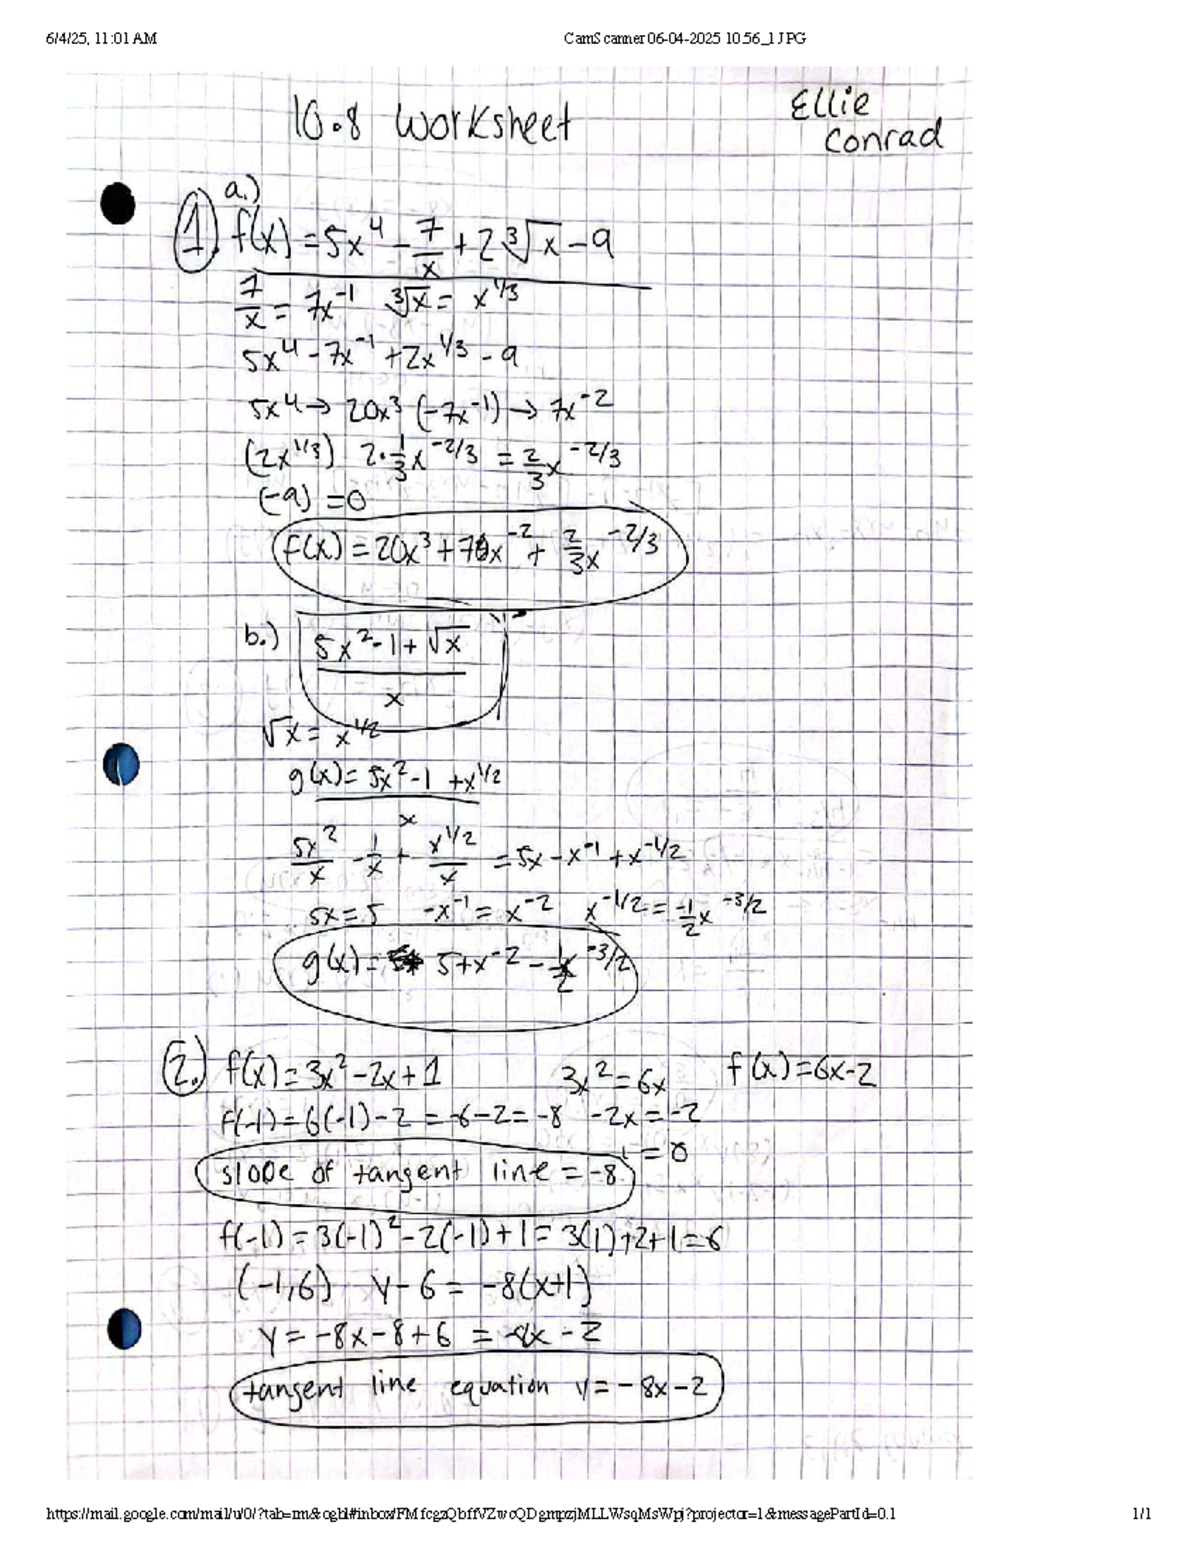 6/4/25, 11:01 AM CamScanner 06-04-2025 10.56_1.JPG
10.8 Worksheet
Ellie
Conrad
a.)
1. f(x) = 5x⁴ - 7/x + 2∛x - 9
7/x = 7x⁻¹ ∛x = x^1/3
5x⁴ - 7x⁻¹ + 2x^1/3 - 9
5x⁴ → 20x³ (-7x⁻¹) → 7x⁻²
(2x^1/3) 2·1/3x^-2/3 = 2/3x^-2/3
(-9) = 0
f(x) = 20x³ + 7x⁻² + 2/3x^-2/3
b.) 5x² - 1 + √x
x
√x = x^1/2
g(x) = 5x² - 1 + x^1/2
x
5x²/x - 1/x + x^1/2/x = 5x - x⁻¹ + x^-1/2
5x = 5 -x⁻¹ = x⁻² x^-1/2 = -1/2x^-3/2
g(x) = 5 + x⁻² - 1/2x^-3/2
2. f(x) = 3x² - 2x + 1 3x² = 6x f(x) = 6x - 2
f(-1) = 6(-1) - 2 = -6 - 2 = -8 -2x = -2
1 = 0
slope of tangent line = -8
f(-1) = 3(-1)² - 2(-1) + 1 = 3(1) + 2 + 1 = 6
(-1,6) y - 6 = -8(x+1)
y = -8x - 8 + 6 = -8x - 2
tangent line equation y = -8x - 2
https://mail.google.com/mail/u/0/?tab=rm&ogbl#inbox/FMfcgzQbffVZwcQDgmpzjMLLWsqMsWpj?projector=1&messagePartId=0.1 1/1